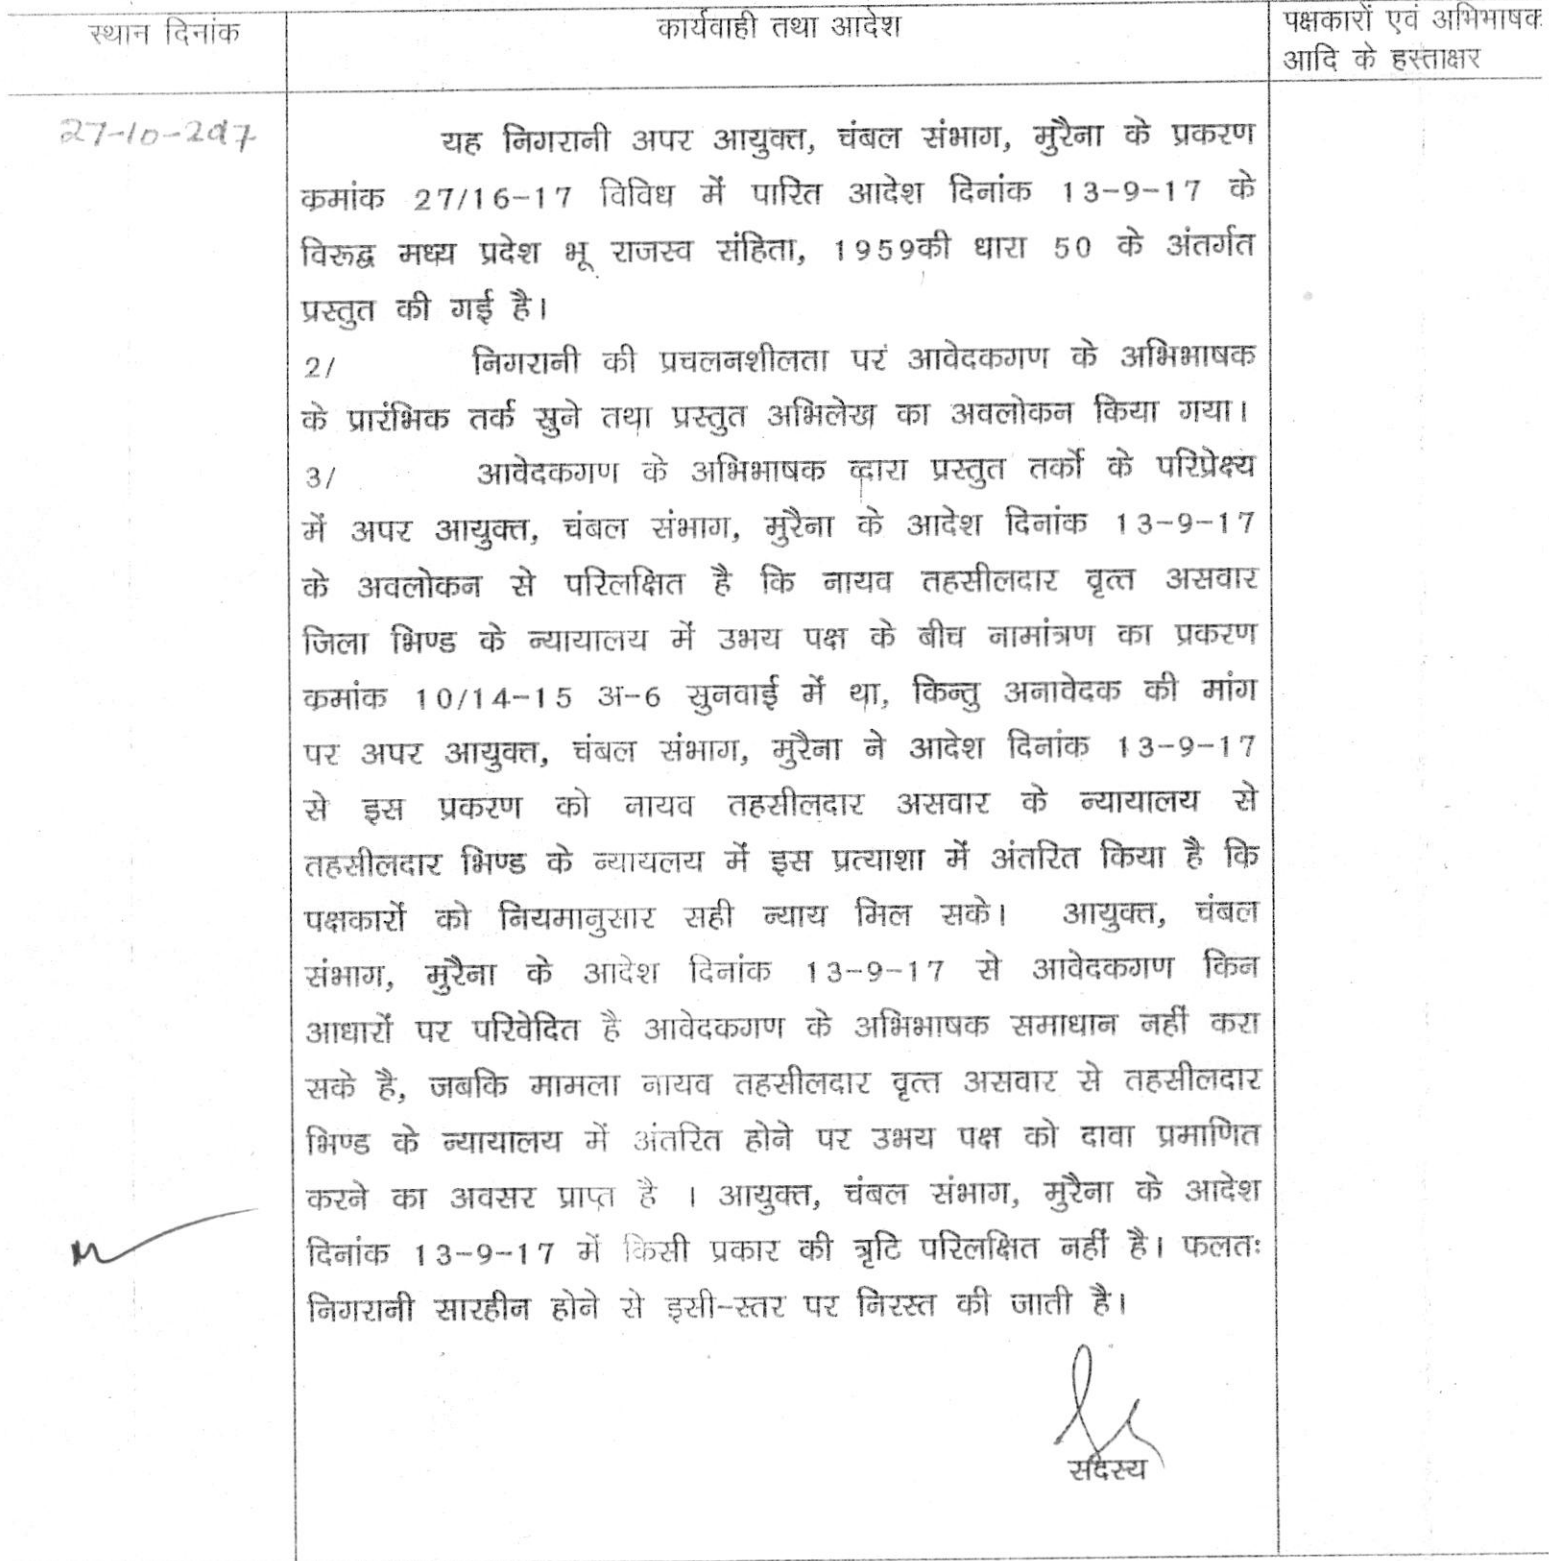 स्थान दिनांक
कार्यवाही तथा आदेश
पक्षकारों एवं अभिभाषक
आदि के हस्ताक्षर
27-10-2017
यह निगरानी अपर आयुक्त, चंबल संभाग, मुरैना के प्रकरण
क्रमांक 27/16-17 विविध में पारित आदेश दिनांक 13-9-17 के
विरूद्व मध्य प्रदेश भू राजस्व संहिता, 1959की धारा 50 के अंतर्गत
प्रस्तुत की गई है।
2/ निगरानी की प्रचलनशीलता पर आवेदकगण के अभिभाषक
के प्रारंभिक तर्क सुने तथा प्रस्तुत अभिलेख का अवलोकन किया गया।
3/ आवेदकगण के अभिभाषक व्दारा प्रस्तुत तर्को के परिप्रेक्ष्य
में अपर आयुक्त, चंबल संभाग, मुरैना के आदेश दिनांक 13-9-17
के अवलोकन से परिलक्षित है कि नायव तहसीलदार वृत्त असवार
जिला भिण्ड के न्यायालय में उभय पक्ष के बीच नामांत्रण का प्रकरण
क्रमांक 10/14-15 अ-6 सुनवाई में था, किन्तु अनावेदक की मांग
पर अपर आयुक्त, चंबल संभाग, मुरैना ने आदेश दिनांक 13-9-17
से इस प्रकरण को नायव तहसीलदार असवार के न्यायालय से
तहसीलदार भिण्ड के न्यायलय में इस प्रत्याशा में अंतरित किया है कि
पक्षकारों को नियमानुसार सही न्याय मिल सके। आयुक्त, चंबल
संभाग, मुरैना के आदेश दिनांक 13-9-17 से आवेदकगण किन
आधारों पर परिवेदित है आवेदकगण के अभिभाषक समाधान नहीं करा
सके है, जबकि मामला नायव तहसीलदार वृत्त असवार से तहसीलदार
भिण्ड के न्यायालय में अंतरित होने पर उभय पक्ष को दावा प्रमाणित
करने का अवसर प्राप्त है । आयुक्त, चंबल संभाग, मुरैना के आदेश
दिनांक 13-9-17 में किसी प्रकार की त्रृटि परिलक्षित नहीं है। फलतः
निगरानी सारहीन होने से इसी-स्तर पर निरस्त की जाती है।
सदस्य